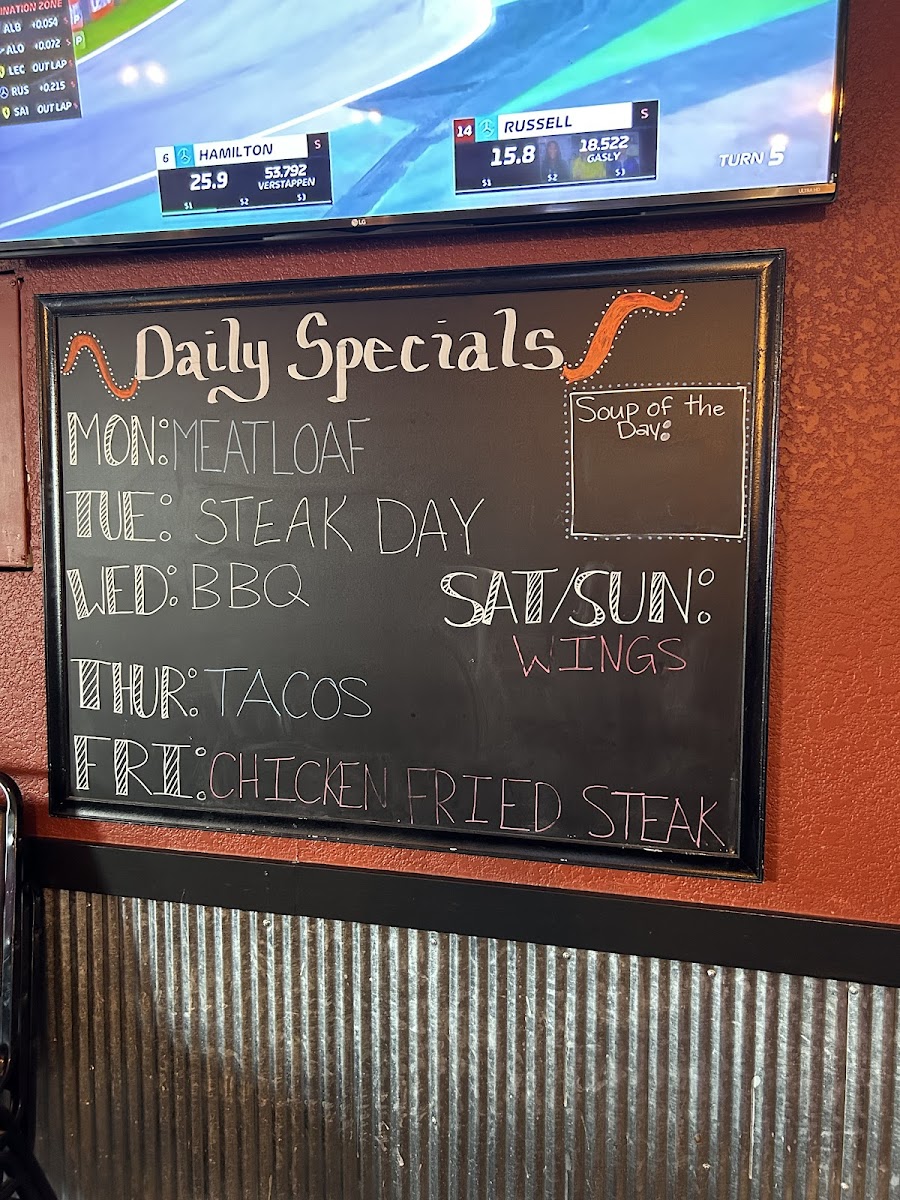 INATION ZONE
ALB +0.054 S
ALO +0.072 S
LEC OUT LAP S
RUS +0.215 S
SAI OUT LAP S
P
P
6 HAMILTON S
25.9 53.792
VERSTAPPEN
S1 S2 S3
14 RUSSELL S
15.8 18.522
GASLY
S1 S2 S3
TURN 5
LG
ULTRA HD
Daily Specials
Soup of the
Day:
MON: MEATLOAF
TUE: STEAK DAY
WED: BBQ
SAT/SUN:
WINGS
THUR: TACOS
FRI: CHICKEN FRIED STEAK